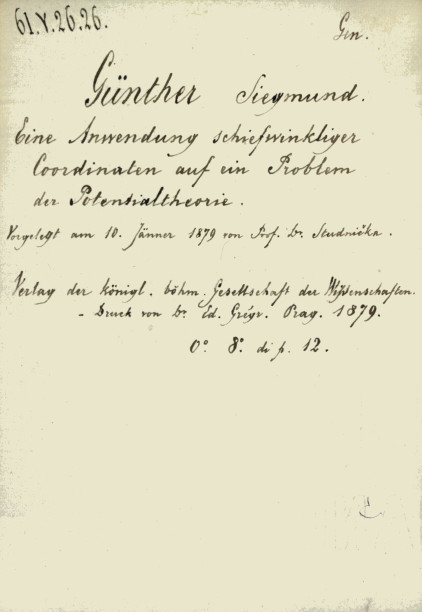 61.V.26.26.
Gen.
Günther Siegmund.
Eine Anwendung schiefwinkliger
Coordinaten auf ein Problem
der Potentialtheorie.
Vorgelegt am 10. Jänner 1879 von Prof. Dr. Studnička.
Verlag der königl. böhm. Gesellschaft der Wißenschaften.
- Druck von Dr. Ed. Grégr. Prag. 1879.
0° 8° di p. 12.